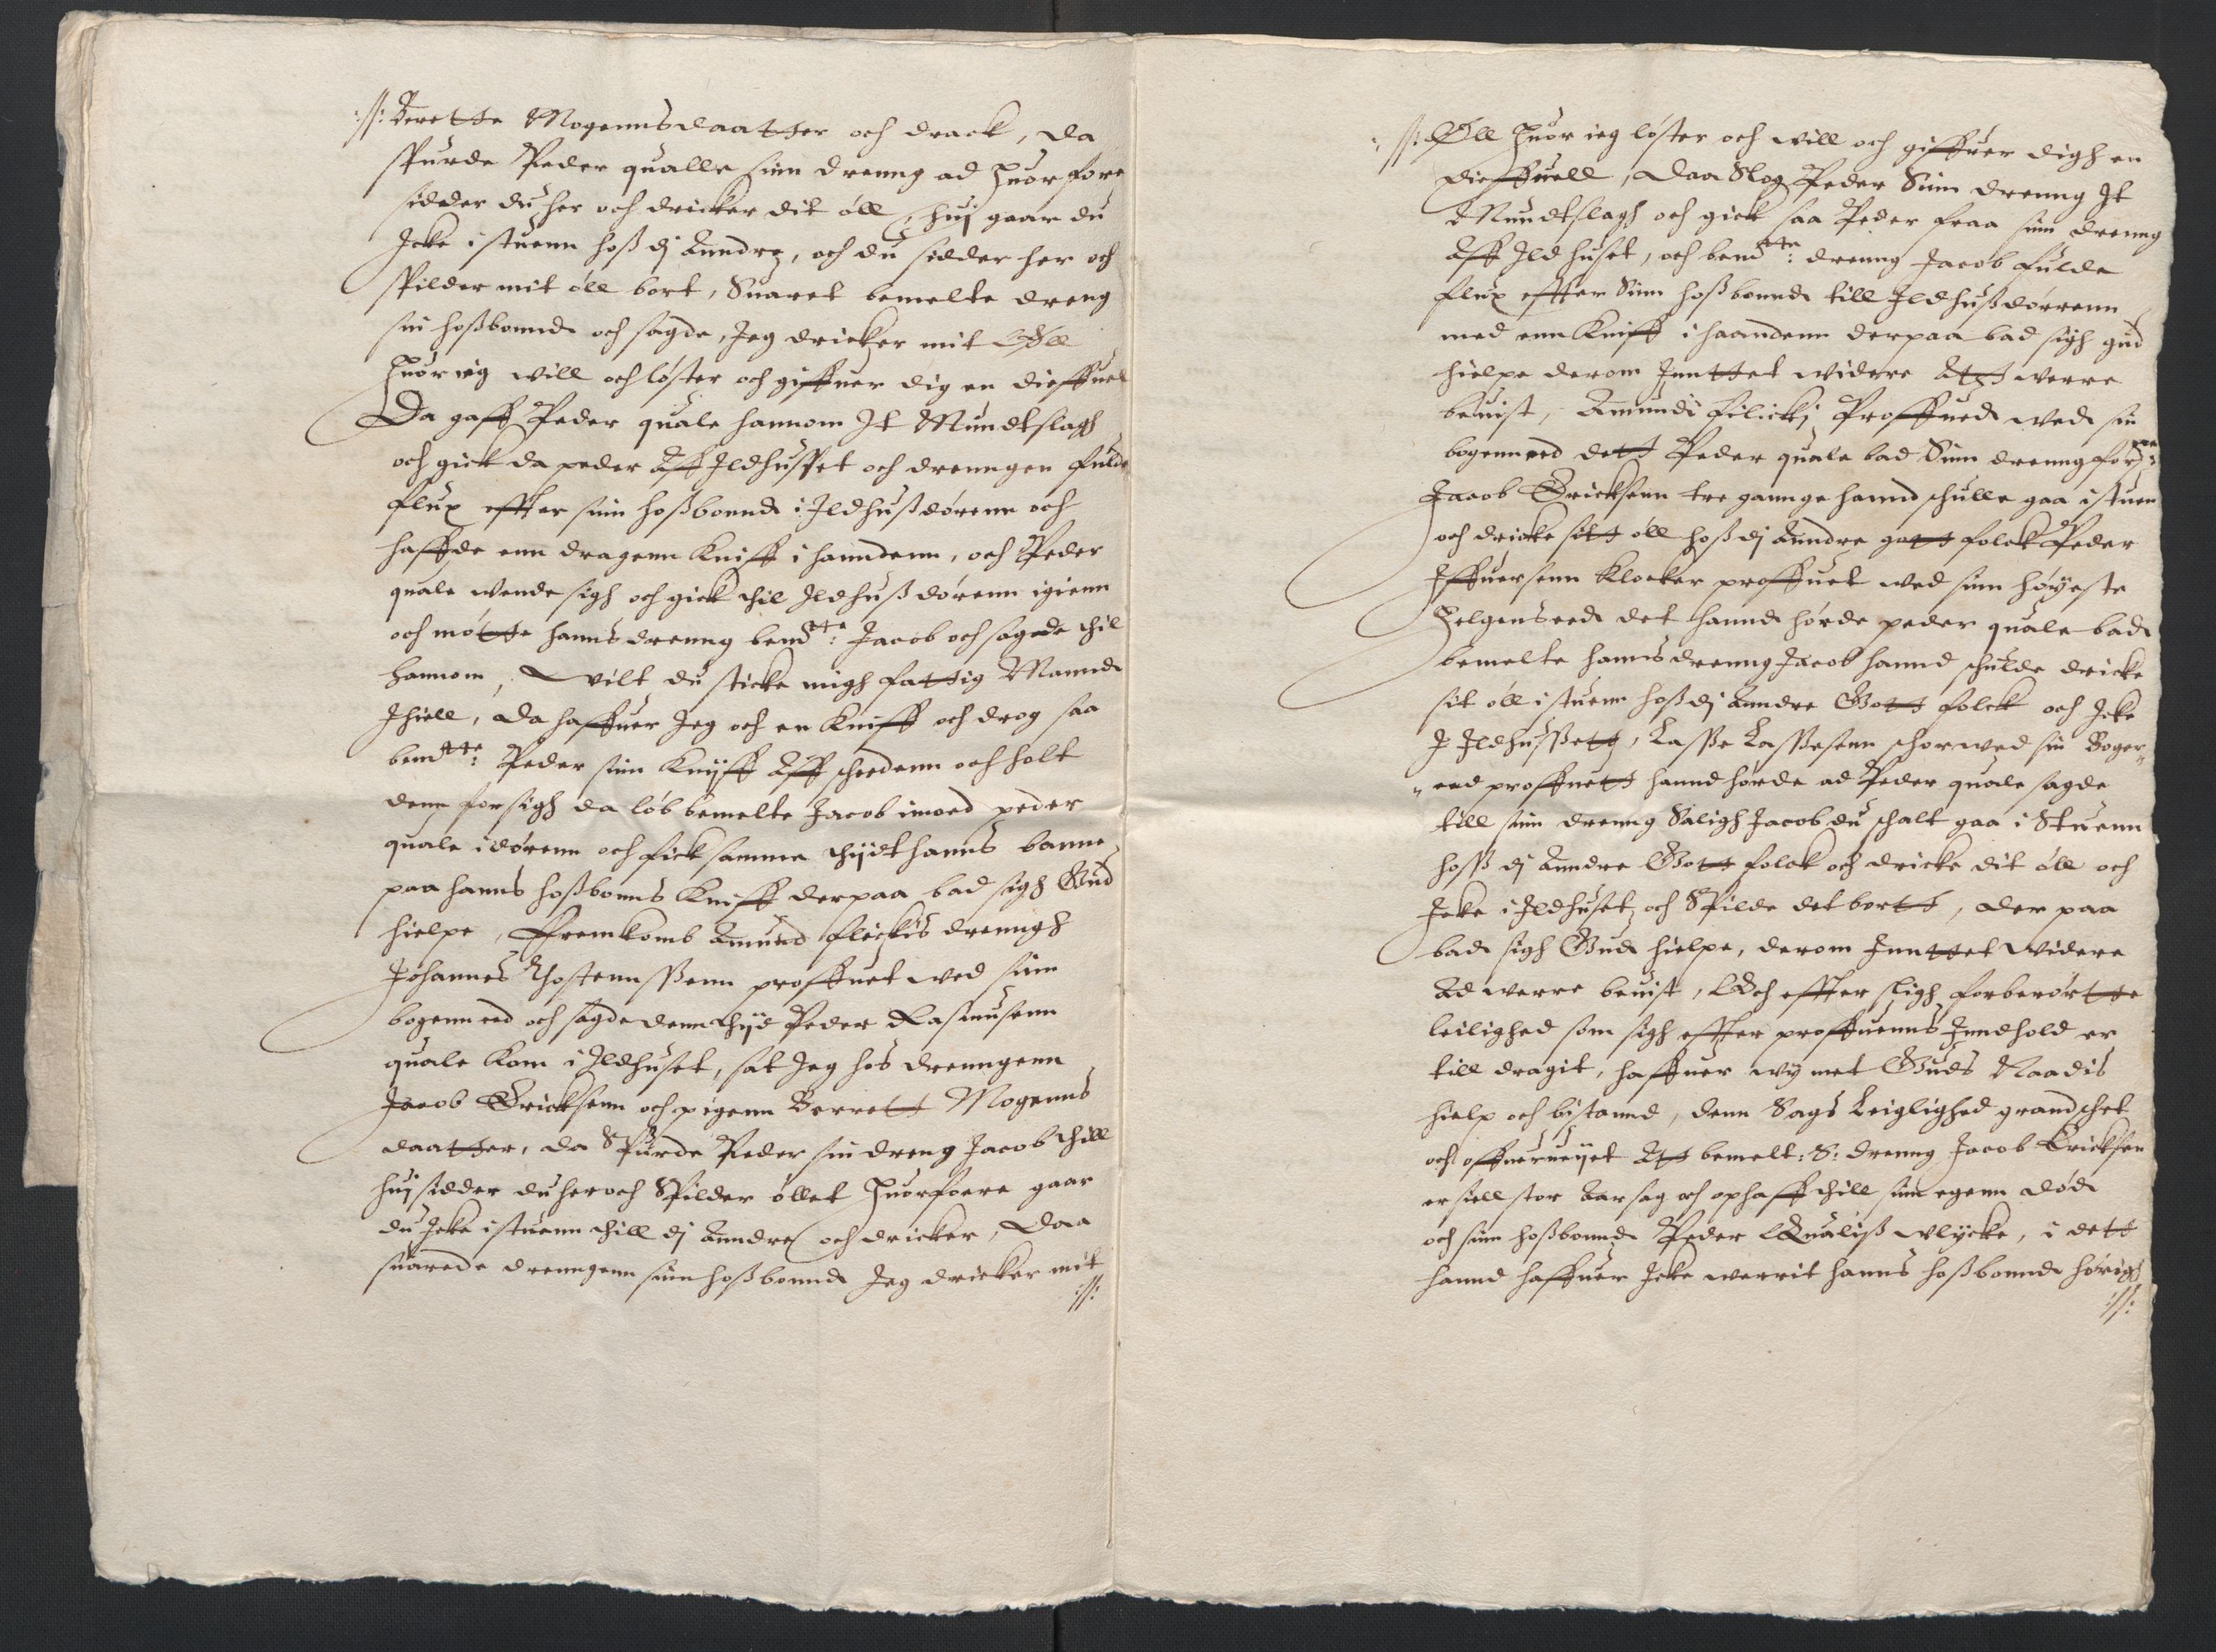 :/: Berette Mogennsdaatter och drack, da
spurde Peder qualle sinn drenng ad huorfore
sidder du her och dricker dit øll, huj gaar du
Icke i stuenn hoß dj Anndre, och du sidder her och
spilder mit øll bort, Suaret bemelte dreng
sin hoßbonnde och sagde, Jeg dricker mit Øll
huor ieg will och løster och giffuer dig en dieffuel
Da gaff Peder quale hannom It Mundtslagh
och gick da peder aff Ildhusset och drenngen fulde
flux effter sinn hoßbonnde i Ildhußdørenn och
haffde enn dragenn Kniff i hanndenn, och Peder
quale wende sigh och gick thil Ildhuß dørenn igienn
och møtte hanns drenng bemdtte: Jacob och sagde thil
hannom, Wilt du sticke migh fattig Mannd
Ihiell, da haffuer Jeg och en Kniff och drog saa
bemdtte: Peder sinn Knyff Aff scheedenn och holt
denn for sigh da løb bemelte Jacob imoed peder
quale i dørenn och fick samme thydt hanns banne
paa hanns hoßbonns Kniff derpaa bad sigh Gud
hielpe, Ffremkomb Amund flickis drenngh
Johannes Thostennssenn proffuet wed sinn
bogenn eed och sagde denn thyd Peder Rasmusenn
quale kom i Ildhuset, sat Jeg hos drenngenn
Jacob Ericksenn och pigenn Berrett Mogenns
daatter, da Spurde Peder sin dreng Jacob thill
huj sidder du her och Spilder øllet huorfoere gaar
du Icke i stuenn thill dj Anndre och dricker, Daa
suarede drenngenn sinn hoßbonnde Jeg dricker mit
:/:
:/: Øll huor ieg løster och will och giffuer digh en
dieffuell, Daa Slog Peder Sinn drenng It
Mundtslagh och gick saa Peder fraa sinn drenng
Aff Ildhuset, och bemdtte: drenng Jacob fulde
flux effter Sinn hoßbonnde till Ildhußdørrenn
med enn Kniff i haandenn derpaa bad sigh gud
hielpe derom Inntet widere Att werre
beuist, Amundi flicki Proffued wed sin
bogenn eed dett Peder quale bad Sinn drenng forne:
Jacob Ericksenn tre gannge hannd schulle gaa i stuen
och dricke sitt øll hoß dj Anndre gott folck Peder
Iffuersenn klocker proffuet wed sinn høyeste
helgens eed det hannd hørde peder quale bad
bemelte hanns drenng Jacob hannd schulde dricke
sit øll i stuenn hoß dj Anndre Gott folck och Icke
I Ildhussett, Lasse Lassesenn schor wed sin Boger
eed proffuett hannd hørde ad Peder quale sagde
till sinn drenng Saligh Jacob du schalt gaa i Stuenn
hoss dj Anndre Gott folck och dricke dit øll och
Icke i Ildhuset och Spilde det bortt, Der paa
bad sigh Gud hielpe, derom Inntet widere
Ad werre beuist, Och effter sligh forberørtte
leilighed som sigh effter proffuenns Inndhold er
till dragit, haffuer wy met Guds Naadis
hielp och bistannd, denn Sags Leiglighed grandschet
och offuerueyet Att bemelt: S: drenng Jacob Ericksen
er siell stor Aarsag och ophaff thill sinn egenn død
och sinn hoßbonnde Peder Qualiß wlycke, i dett
hannd haffuer Icke werrit hanns hoßbonnde hørigh
:/: